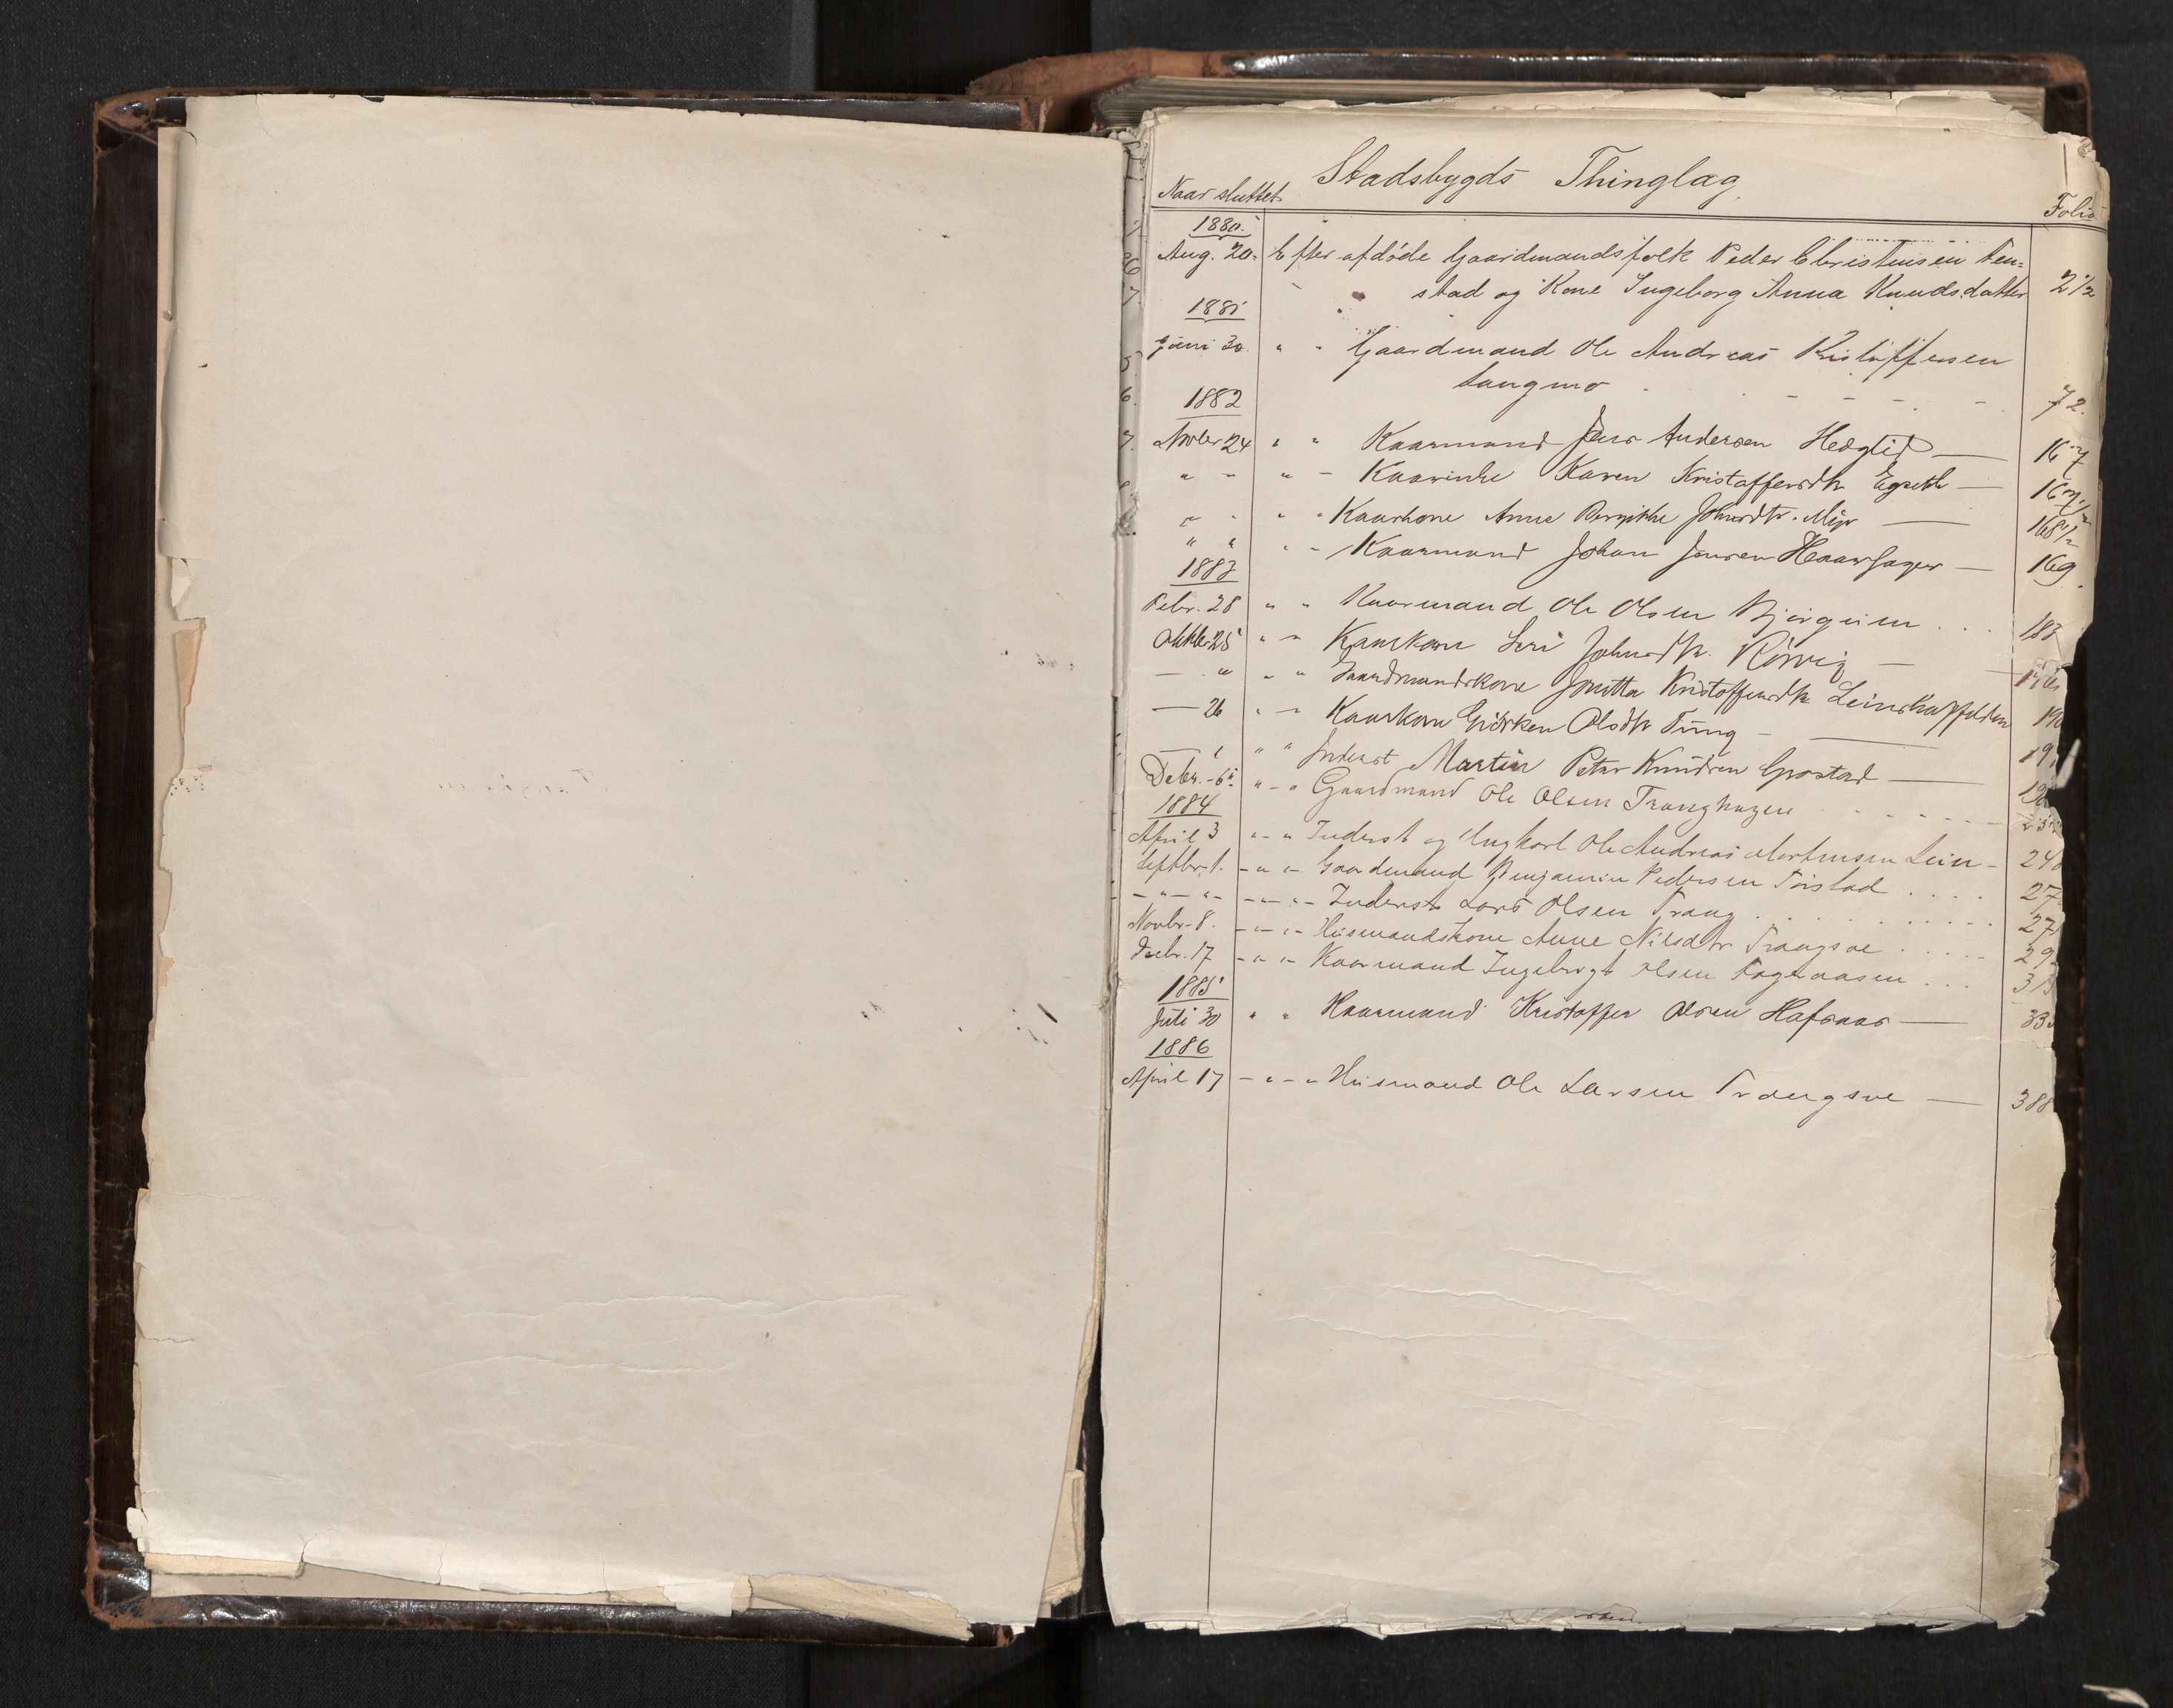 Stadsbygds Thinglag
Naar sluttet
Folio
1880.
Aug. 20. Efter afdöde Gaardmandsfolk Peder Christensen Fen-
stad og Kone Ingeborg Anna Knudsdatter 2 1/2
1881
Juni 30. " " Gaardmand Ole Andreas Kristoffersen
Langmo 72.
1882
Novbr 24 " " Kaarmand Jens Andersen Hedglid — 167
" " " " Kaarinke Karen Kristoffersdtr — 167 1/2
" " " " Kaarkone Anne Johnsdtr. — 168 1/2
" " " " Kaarmand Johan Jensen — 169
1883
Febr. 28 " " Kaarmand Ole Olsen Bjørguim . . . 183
Oktbr 25 " " Kaarkone Johnsdtr. Rörvig —
— " " " Gaardmandskone Jonetta Kristoffersdtr
— 26 " " Kaarkone Olsdtr Tüng —
— " " " Inderst Martin Peter Knudsen Grostad —
Debr. - 6 " - " Gaardmand Ole Olsen Tranghagen
1884
April 3 " - " Inderst og Ungkarl Ole Andreas Mortensen Lein -
Septbr. 1. - " - " - Gaardmand Benjamin Pedersen . . . .
- " - " - - " - " - Inderst Lars Olsen Trang . . . .
Novbr. 8. - " - " - Husmandskone Anne Nilsdtr Trangsve . . . .
Decbr. 17 - " - " - Kaarmand Ingebrigt Olsen . . .
1885
Juli 30 " " Kaarmand Kristoffer Olsen Hafsaas —
1886
April 17 - " - " Husmand Ole Larsen Trangsve — 388